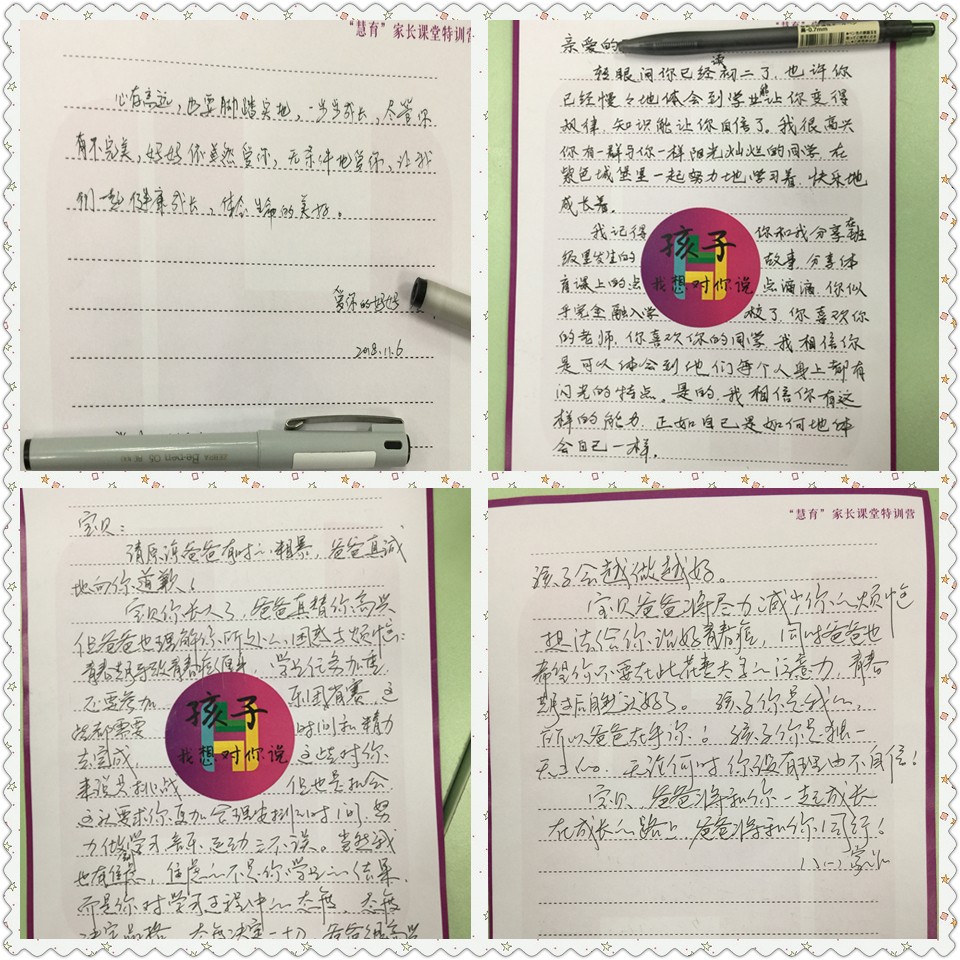 "慧育"家长课堂特训营
心存高远，也要脚踏实地，一步步成长，尽管你
有不完美，妈妈依然爱你，无条件地爱你，让我
们一起健康成长，体会生命的美好。
爱你的妈妈
2018.11.6
亲爱的
转眼间你已经初二了，也许你
已经慢々地体会到学业让你变得
规律，知识能让你自信了。我很高兴
你有一群与你一样阳光灿烂的同学，在
紫色城堡里一起努力地学习着，快乐地
成长着。
我记得 你和我分享在班
级里发生的 故事，分享体
育课上的点 点滴滴，你似
乎完全融入学 校了，你喜欢你
的老师，你喜欢你的同学，我相信你
是可以体会到他们每个人身上都有
闪光的特点。是的，我相信你有这
样的能力，正如自己是如何地体
会自己一样。
孩子
我想对你说
0.7mm
宝贝：
请原谅爸爸有时的粗暴，爸爸真诚
地向你道歉！
宝贝你长大了，爸爸真替你高兴
但爸爸也理解你所处的困惑与烦恼：
青春期导致青春痘 学业任务加重，
还要参加 乐团有赛，这
些都需要 时间和精力
去完成 这些对你
来说是挑战 但也是机会
这就要求你更加合理安排的时间，努
力做到学习音乐运动三不误。当然我
也有焦虑，焦虑的不是你学习的结果，
而是你对学习过程中的态度，态度
决定品格，态度决定一切，爸爸很高兴
孩子
我想对你说
"慧育"家长课堂特训营
孩子会越做越好。
宝贝爸爸将尽力减少你的烦恼
想法会你治好青春痘，同时爸爸也
希望你不要在此花费太多的注意力，青春
期过后自然就好了。 孩子你是我的，
所以爸爸在乎你！孩子你是独一
无二的。无论何时你没有理由不自信！
宝贝，爸爸将和你一起成长
在成长的路上，爸爸将和你同行！